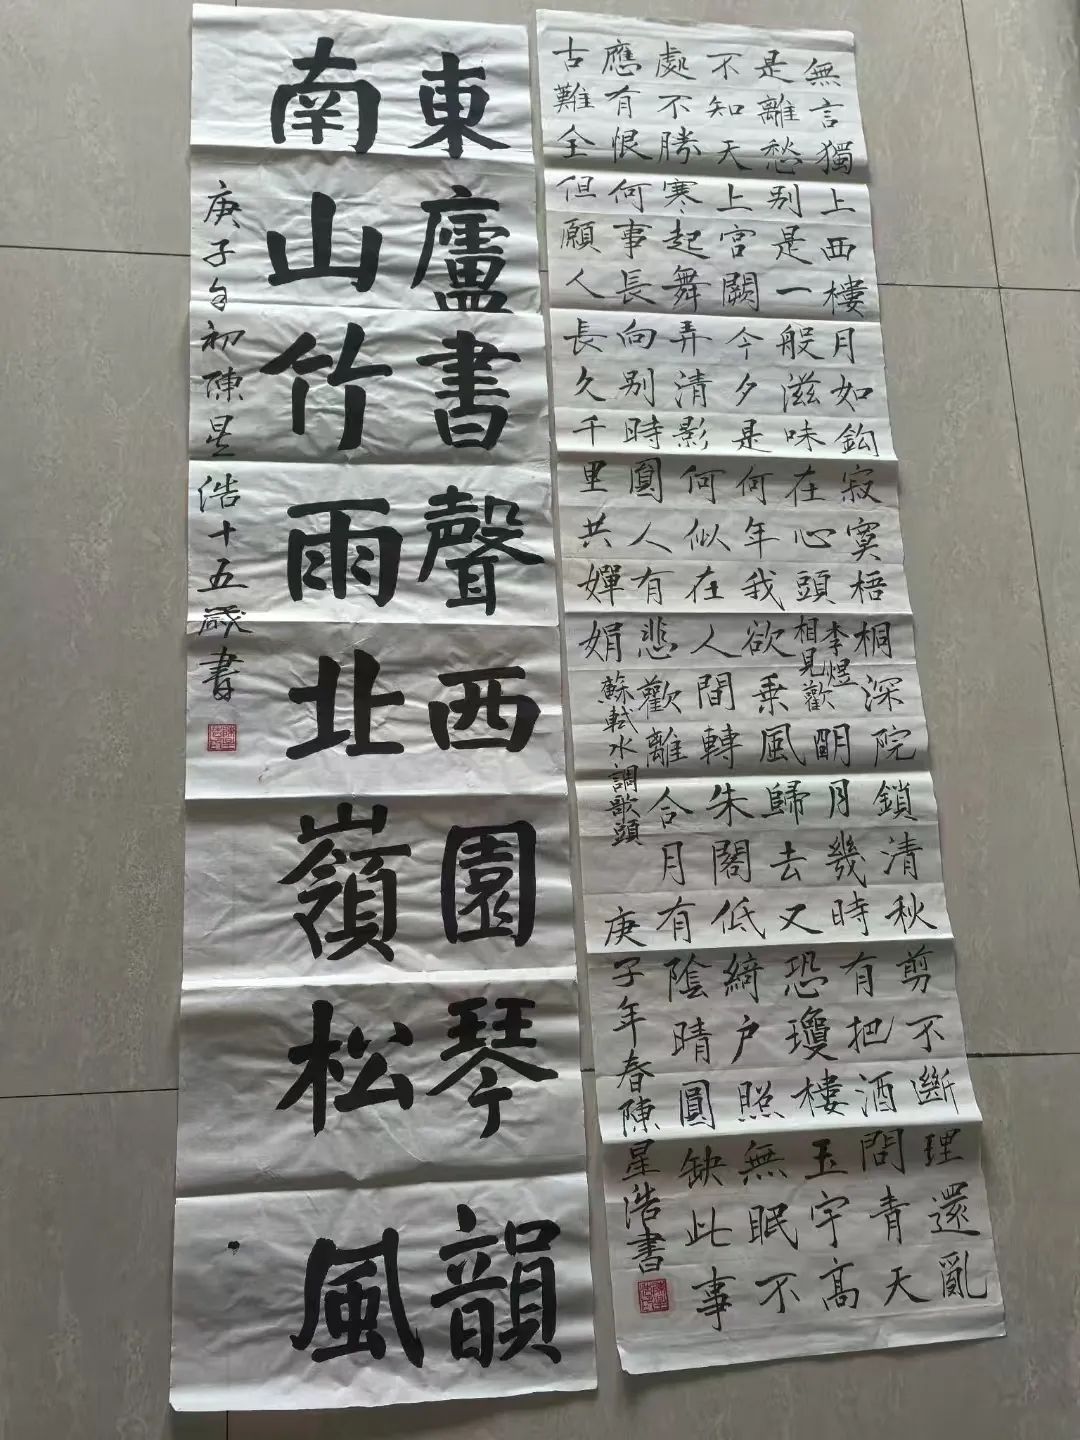 無言獨上西樓月如鈎寂寞梧桐深院鎖清秋剪不斷理還亂
是離愁別是一般滋味在心頭
李煜
相見歡
朙月幾時有把酒問青天
不知天上宮闕今夕是何年我欲乘風歸去又恐瓊樓玉宇高
處不勝寒起舞弄清影何似在人間轉朱閣低綺户照無眠不
應有恨何事長向別時圓人有悲歡離合月有陰晴圓缺此事
古難全但願人長久千里共嬋娟
蘇軾水調歌頭
庚子年春陳星浩書
東廬書聲西園琴韻
南山竹雨北嶺松風
庚子年初陳星浩十五歲書